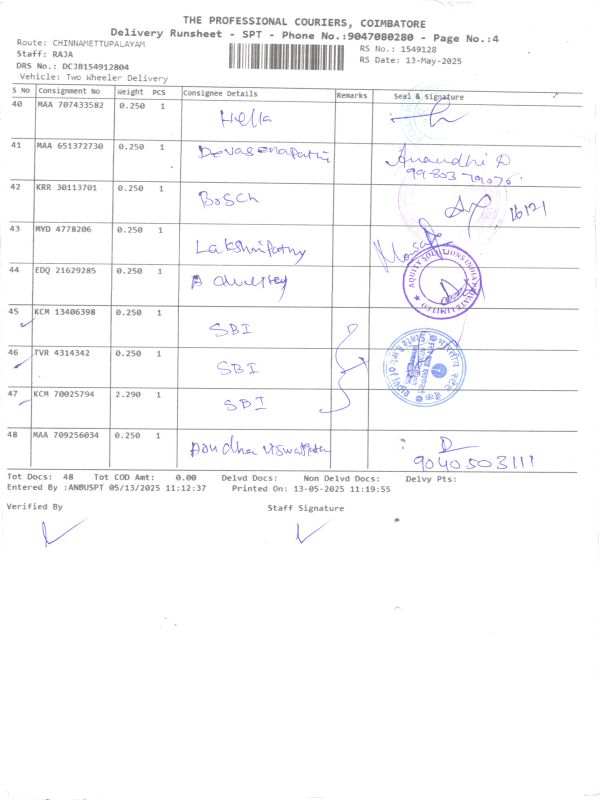 THE PROFESSIONAL COURIERS, COIMBATORE
Delivery Runsheet - SPT - Phone No.:9047080280 - Page No.:4
Route: CHINNAMETTUPALAYAM
RS No.: 1549128
Staff: RAJA
RS Date: 13-May-2025
DRS No.: DCJB154912804
Vehicle: Two Wheeler Delivery
S No Consignment No Weight PCS Consignee Details Remarks Seal & Signature
40 MAA 707433582 0.250 1 Hella
41 MAA 651372730 0.250 1 Devasenapathi Anandhi D
99-803-79076
42 KRR 30113701 0.250 1 BOSCH 16121
43 MYD 4778206 0.250 1 Lakshmipathy
44 EDQ 21629285 0.250 1
AQUITY SOLUTIONS INDIA PRIVATE LIMITED
45 KCM 13406398 0.250 1 SBI
46 TVR 4314342 0.250 1 SBI
47 KCM 70025794 2.290 1 SBI
48 MAA 709256034 0.250 1
9040503111
Tot Docs: 48 Tot COD Amt: 0.00 Delvd Docs: Non Delvd Docs: Delvy Pts:
Entered By :ANBUSPT 05/13/2025 11:12:37 Printed On: 13-05-2025 11:19:55
Verified By Staff Signature